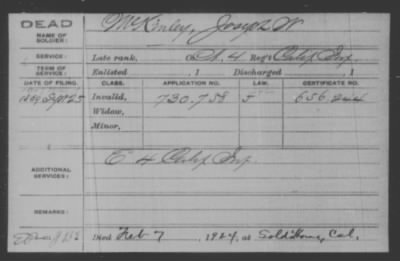 DEAD
NAME OF SOLDIER: McKinley, Joseph W
SERVICE: Late rank, Co. A. 4 Reg't Calif Inf.
TERM OF SERVICE: Enlisted , 1 Discharged , 1
DATE OF FILING. CLASS. APPLICATION NO. LAW. CERTIFICATE NO.
Sept 25 Invalid, 730.758 656.244
Widow,
Minor,
ADDITIONAL SERVICES: E 4 Calif Inf.
REMARKS:
Died Feb 7 , 1924, at Sold Home, Cal.